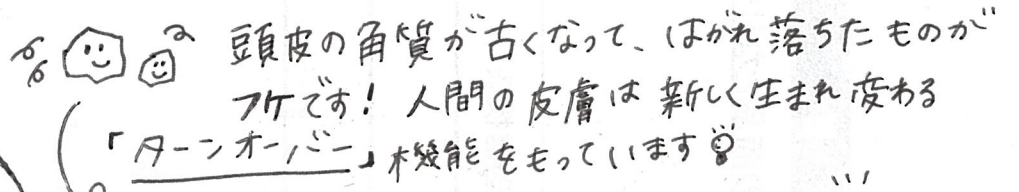 頭皮の角質が古くなって、はがれ落ちたものが
フケです! 人間の皮膚は新しく生まれ変わる
「ターンオーバー」機能をもっています